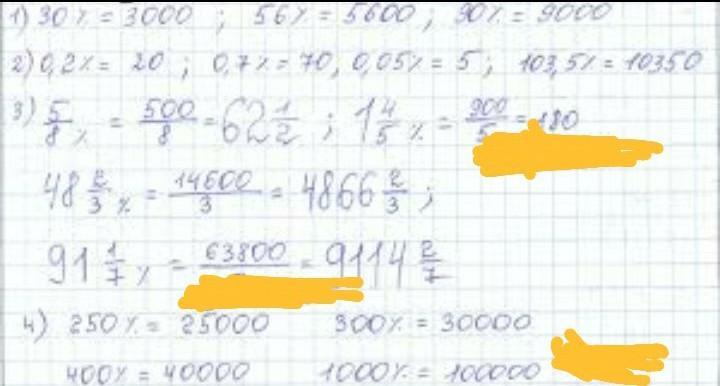 1) 30% = 3000 ; 56% = 5600 ; 90% = 9000
2) 0,2% = 20 ; 0,7% = 70, 0,05% = 5 ; 103,5% = 10350
3) 5/8 % = 500/8 = 62 1/2 ; 1 4/5 % = 900/5 = 180
48 2/3 % = 14600/3 = 4866 2/3 ;
91 1/7 % = 63800 = 9114 2/7
4) 250% = 25000 300% = 30000
400% = 40000 1000% = 100000